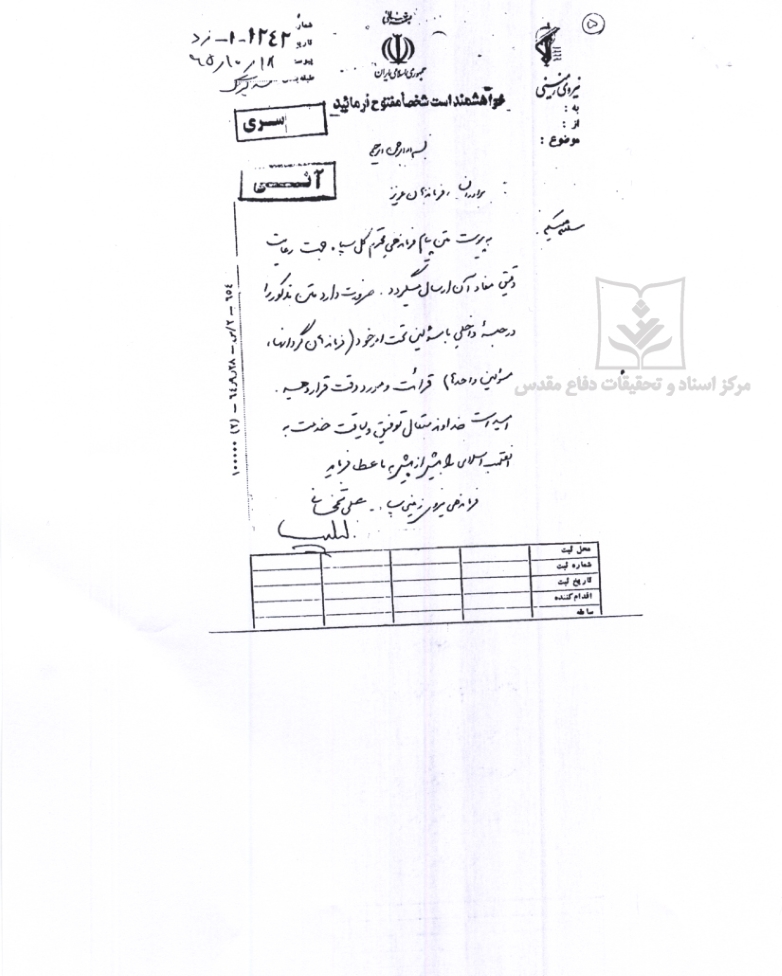 ۵
بسمه تعالی
جمهوری اسلامی ایران
نیروی زمینی
به :
از :
موضوع :
شماره ۱۲۴۲-۱-
تاریخ ۶۵/۱۰/۱۸
پیوست
طبقه‌بندی
خواهشمند است شخصاً مفتوح فرمائید
سری
آنی
بسم الله الرحمن الرحیم
برادران ، فرماندهان عزیز
سلام علیکم
به پیوست متن پیام فرماندهی محترم کل سپاه جهت رعایت
دقیق مفاد آن ارسال میگردد . ضرورت دارد متن مذکور را
در جلسهٔ داخلی با مسئولین تحت امر خود ( فرماندهان گردانها ،
مسئولین واحدها ) قرائت و مورد دقت قرار دهید .
امید است خداوند متعال توفیق و لیاقت خدمت به
انقلاب اسلامی را بیش از پیش به ما عطا فرماید
فرماندهی نیروی زمینی سپاه - علی شمخانی
محل ثبت
شماره ثبت
تاریخ ثبت
اقدام کننده
سابقه
مرکز اسناد و تحقیقات دفاع مقدس